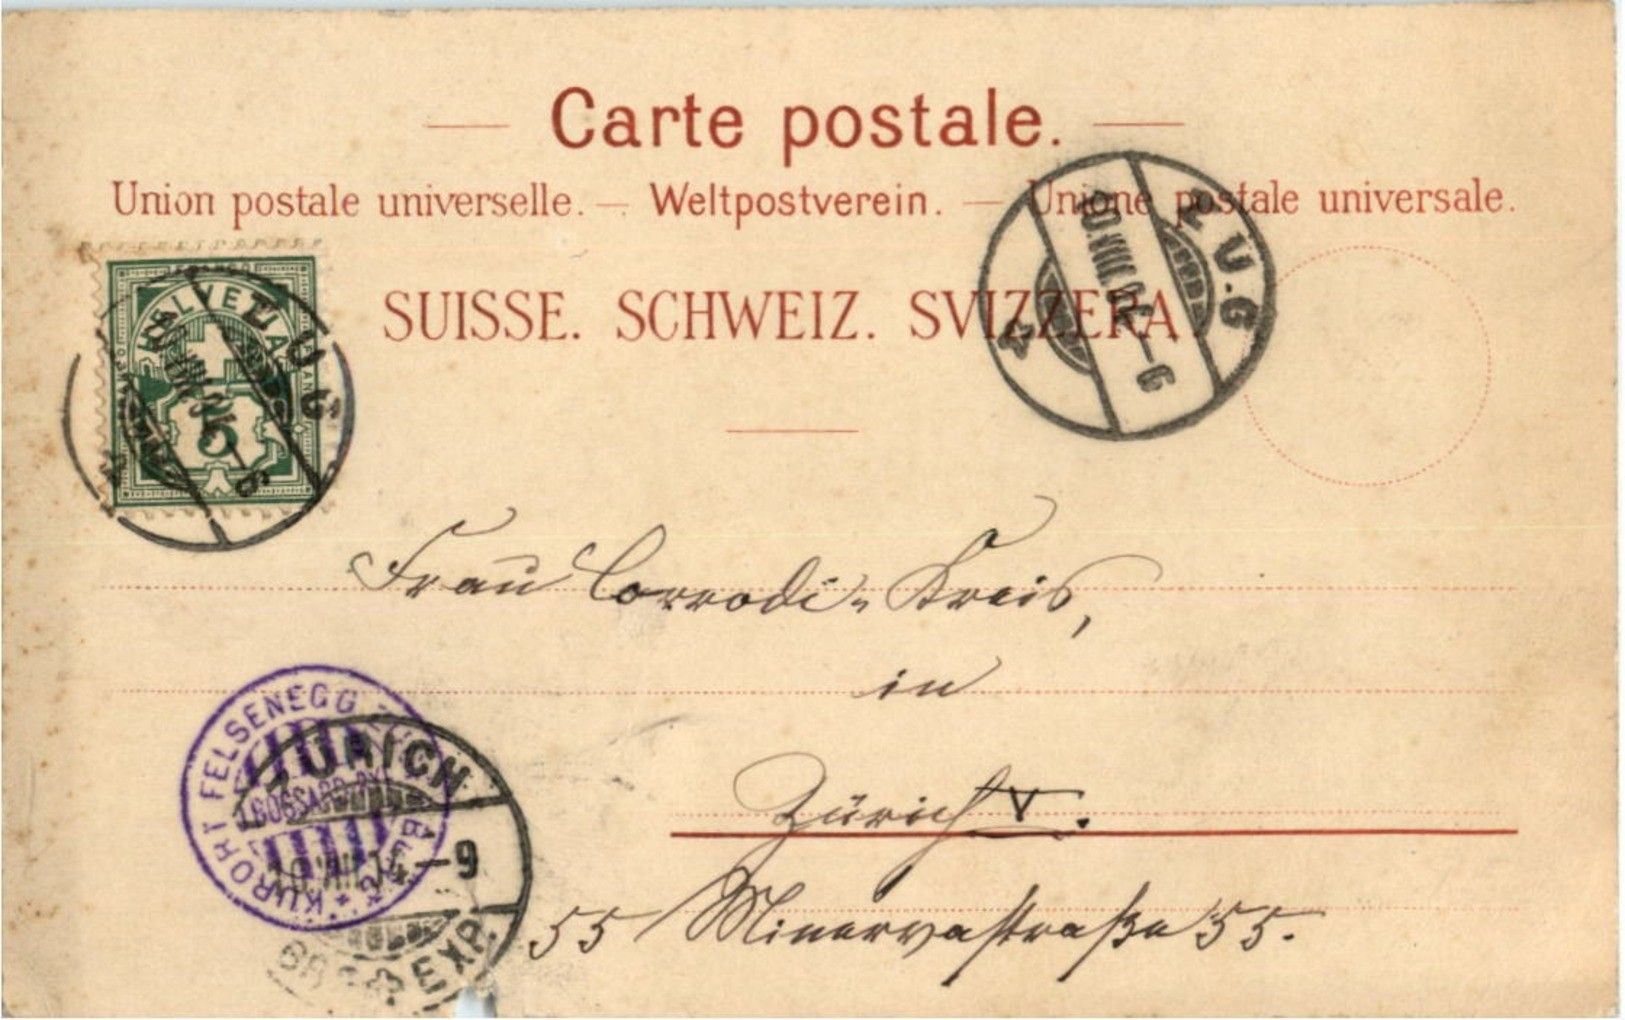 Carte postale.
Union postale universelle. — Weltpostverein. — Unione postale universale.
SUISSE. SCHWEIZ. SVIZZERA.
HELVETIA
5
ZUG
ZUG
Frau Corrodi-Kreis,
in
Zürich V.
55 Minervastraße 55.
KURORT FELSENEGG
ZÜRICH
–9
EXP.